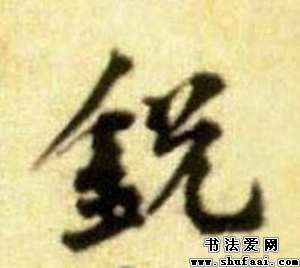 鋭
书法爱网
www.shufaai.com